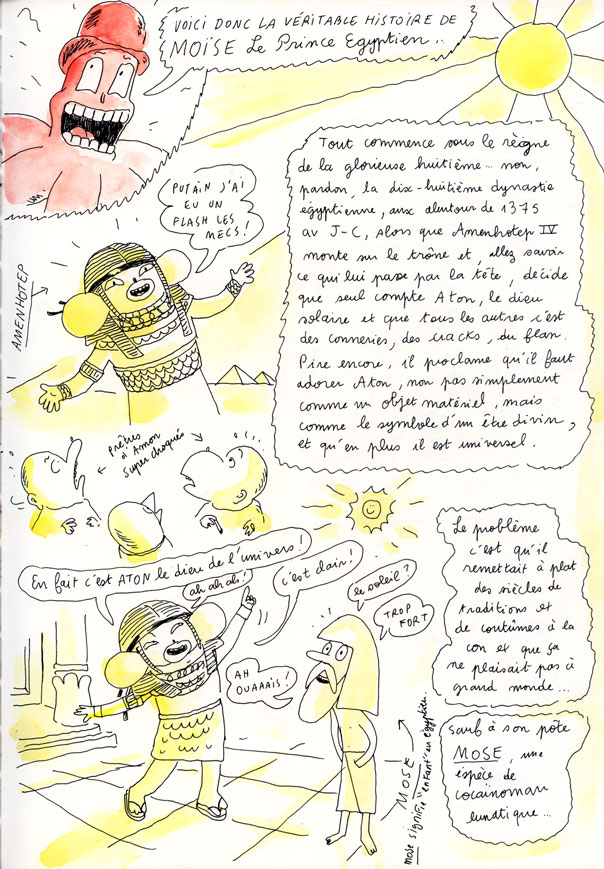 VOICI DONC LA VÉRITABLE HISTOIRE DE
MOÏSE Le Prince Egyptien..
Tout commence sous le règne
de la glorieuse huitième... non,
pardon, la dix-huitième dynastie
égyptienne, aux alentour de 1375
av J-C, alors que Amenhotep IV
monte sur le trône et, allez savoir
ce qui lui passe par la tête, décide
que seul compte Aton, le dieu
solaire et que tous les autres c'est
des conneries, des cracks, du flan.
Pire encore, il proclame qu'il faut
adorer Aton, non pas simplement
comme un objet matériel, mais
comme le symbole d'un être divin,
et qu'en plus il est universel.
PUTAIN J'AI
EU UN
FLASH LES
MECS!
AMENHOTEP
Prêtres
d'Amon
super choqués
En fait c'est ATON le dieu de l'univers!
ah ah ah!
c'est clair!
le soleil?
TROP
FORT
AH
OUAAAIS!
MOSE
mose signifie "enfant" en égyptien.
Le problème
c'est qu'il
remettait à plat
des siècles de
traditions et
de coutûmes à la
con et que ça
ne plaisait pas à
grand monde...
sauf à son pôte
MOSE, une
espèce de
cocaïnoman
lunatique...